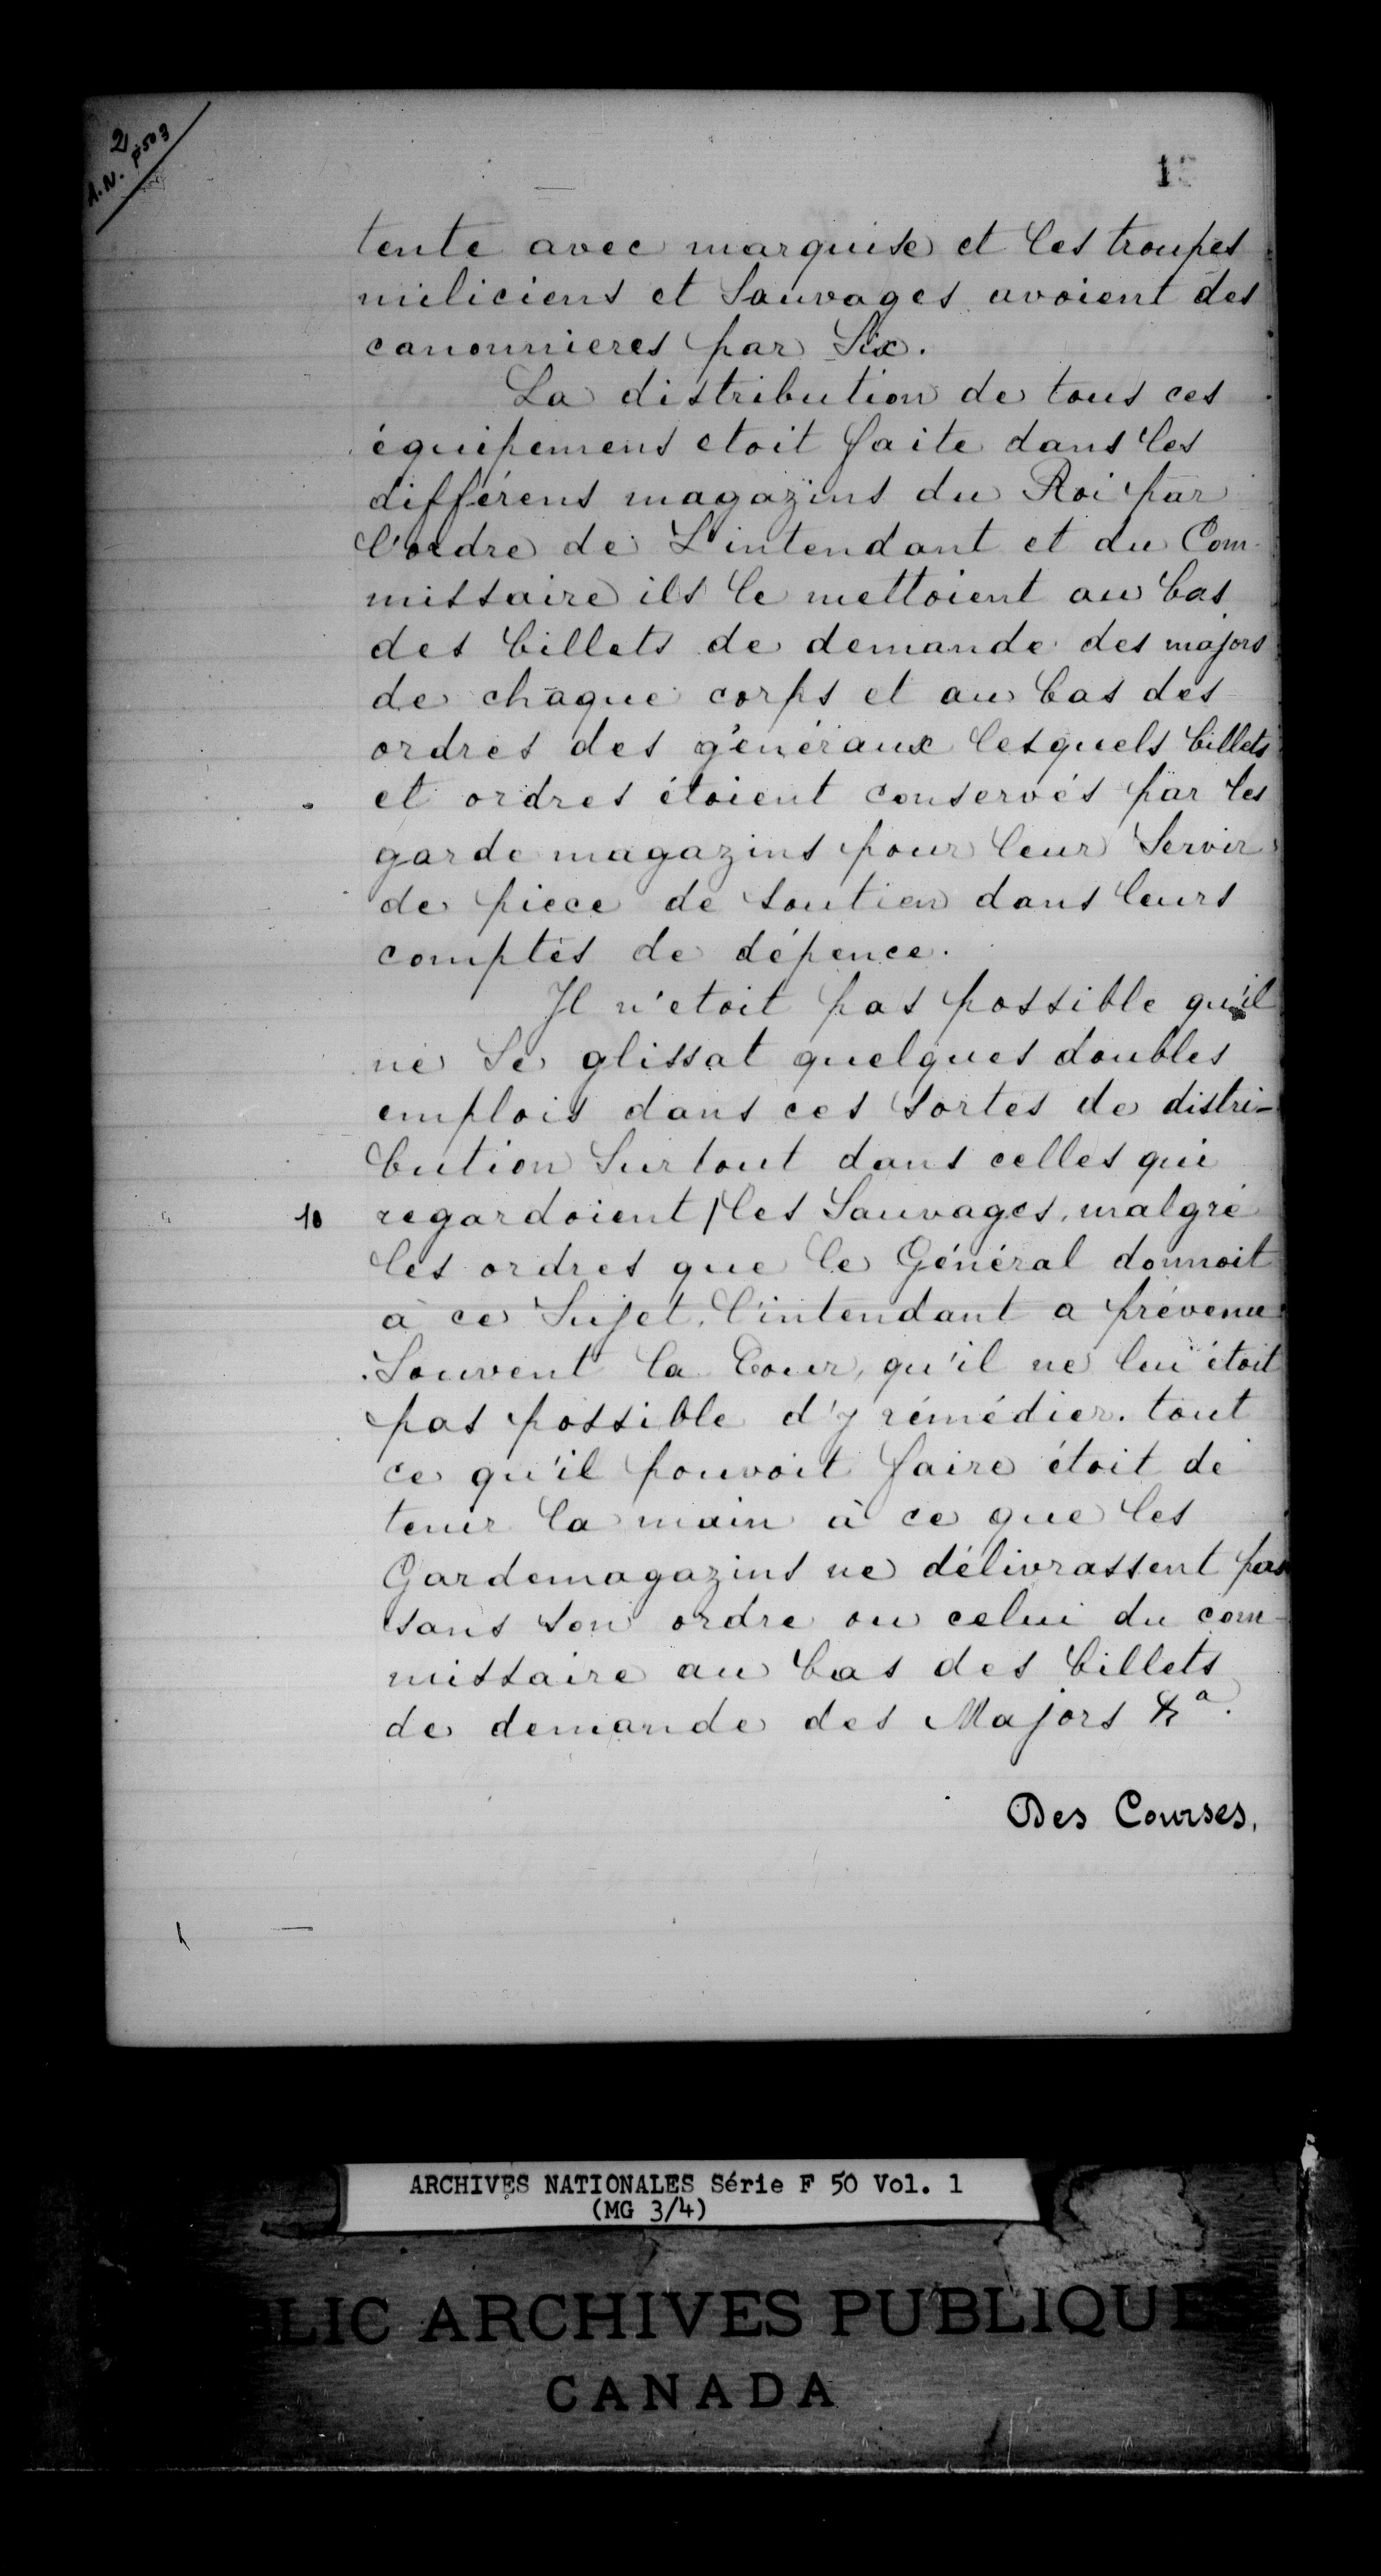 2
A.N. p 503
tente avec marquise et les troupes
miliciens et Sauvages avoient des
canonnieres par Six.
La distribution de tous ces
équipemens etoit faite dans les
différens magazins du Roi par
l'ordre de L'intendant et du Com-
missaire ils le mettoient au bas
des billets de demande des majors
de chaque corps et au bas des
ordres des généraux lesquels billets
et ordres étoient conservés par les
garde magazins pour leur Servir
de piece de soutien dans leurs
comptes de dépence.
Il n'etoit pas possible qu'il
ne Se glissat quelques doubles
emplois dans ces sortes de distri-
bution Surtout dans celles qui
10 regardoient / les Sauvages, malgré
les ordres que le Général donnoit
à ce Sujet, l'intendant a prévenu
Souvent la Cour, qu'il ne lui étoit
pas possible d'y rémédier. tout
ce qu'il pouvoit faire étoit de
tenir la main à ce que les
Gardemagazins ne délivrassent pas
sans son ordre ou celui du com-
missaire au bas des billets
de demande des Majors &a.
Des Courses,
ARCHIVES NATIONALES Série F 50 Vol. 1
(MG 3/4)
LIC ARCHIVES PUBLIQUE
CANADA